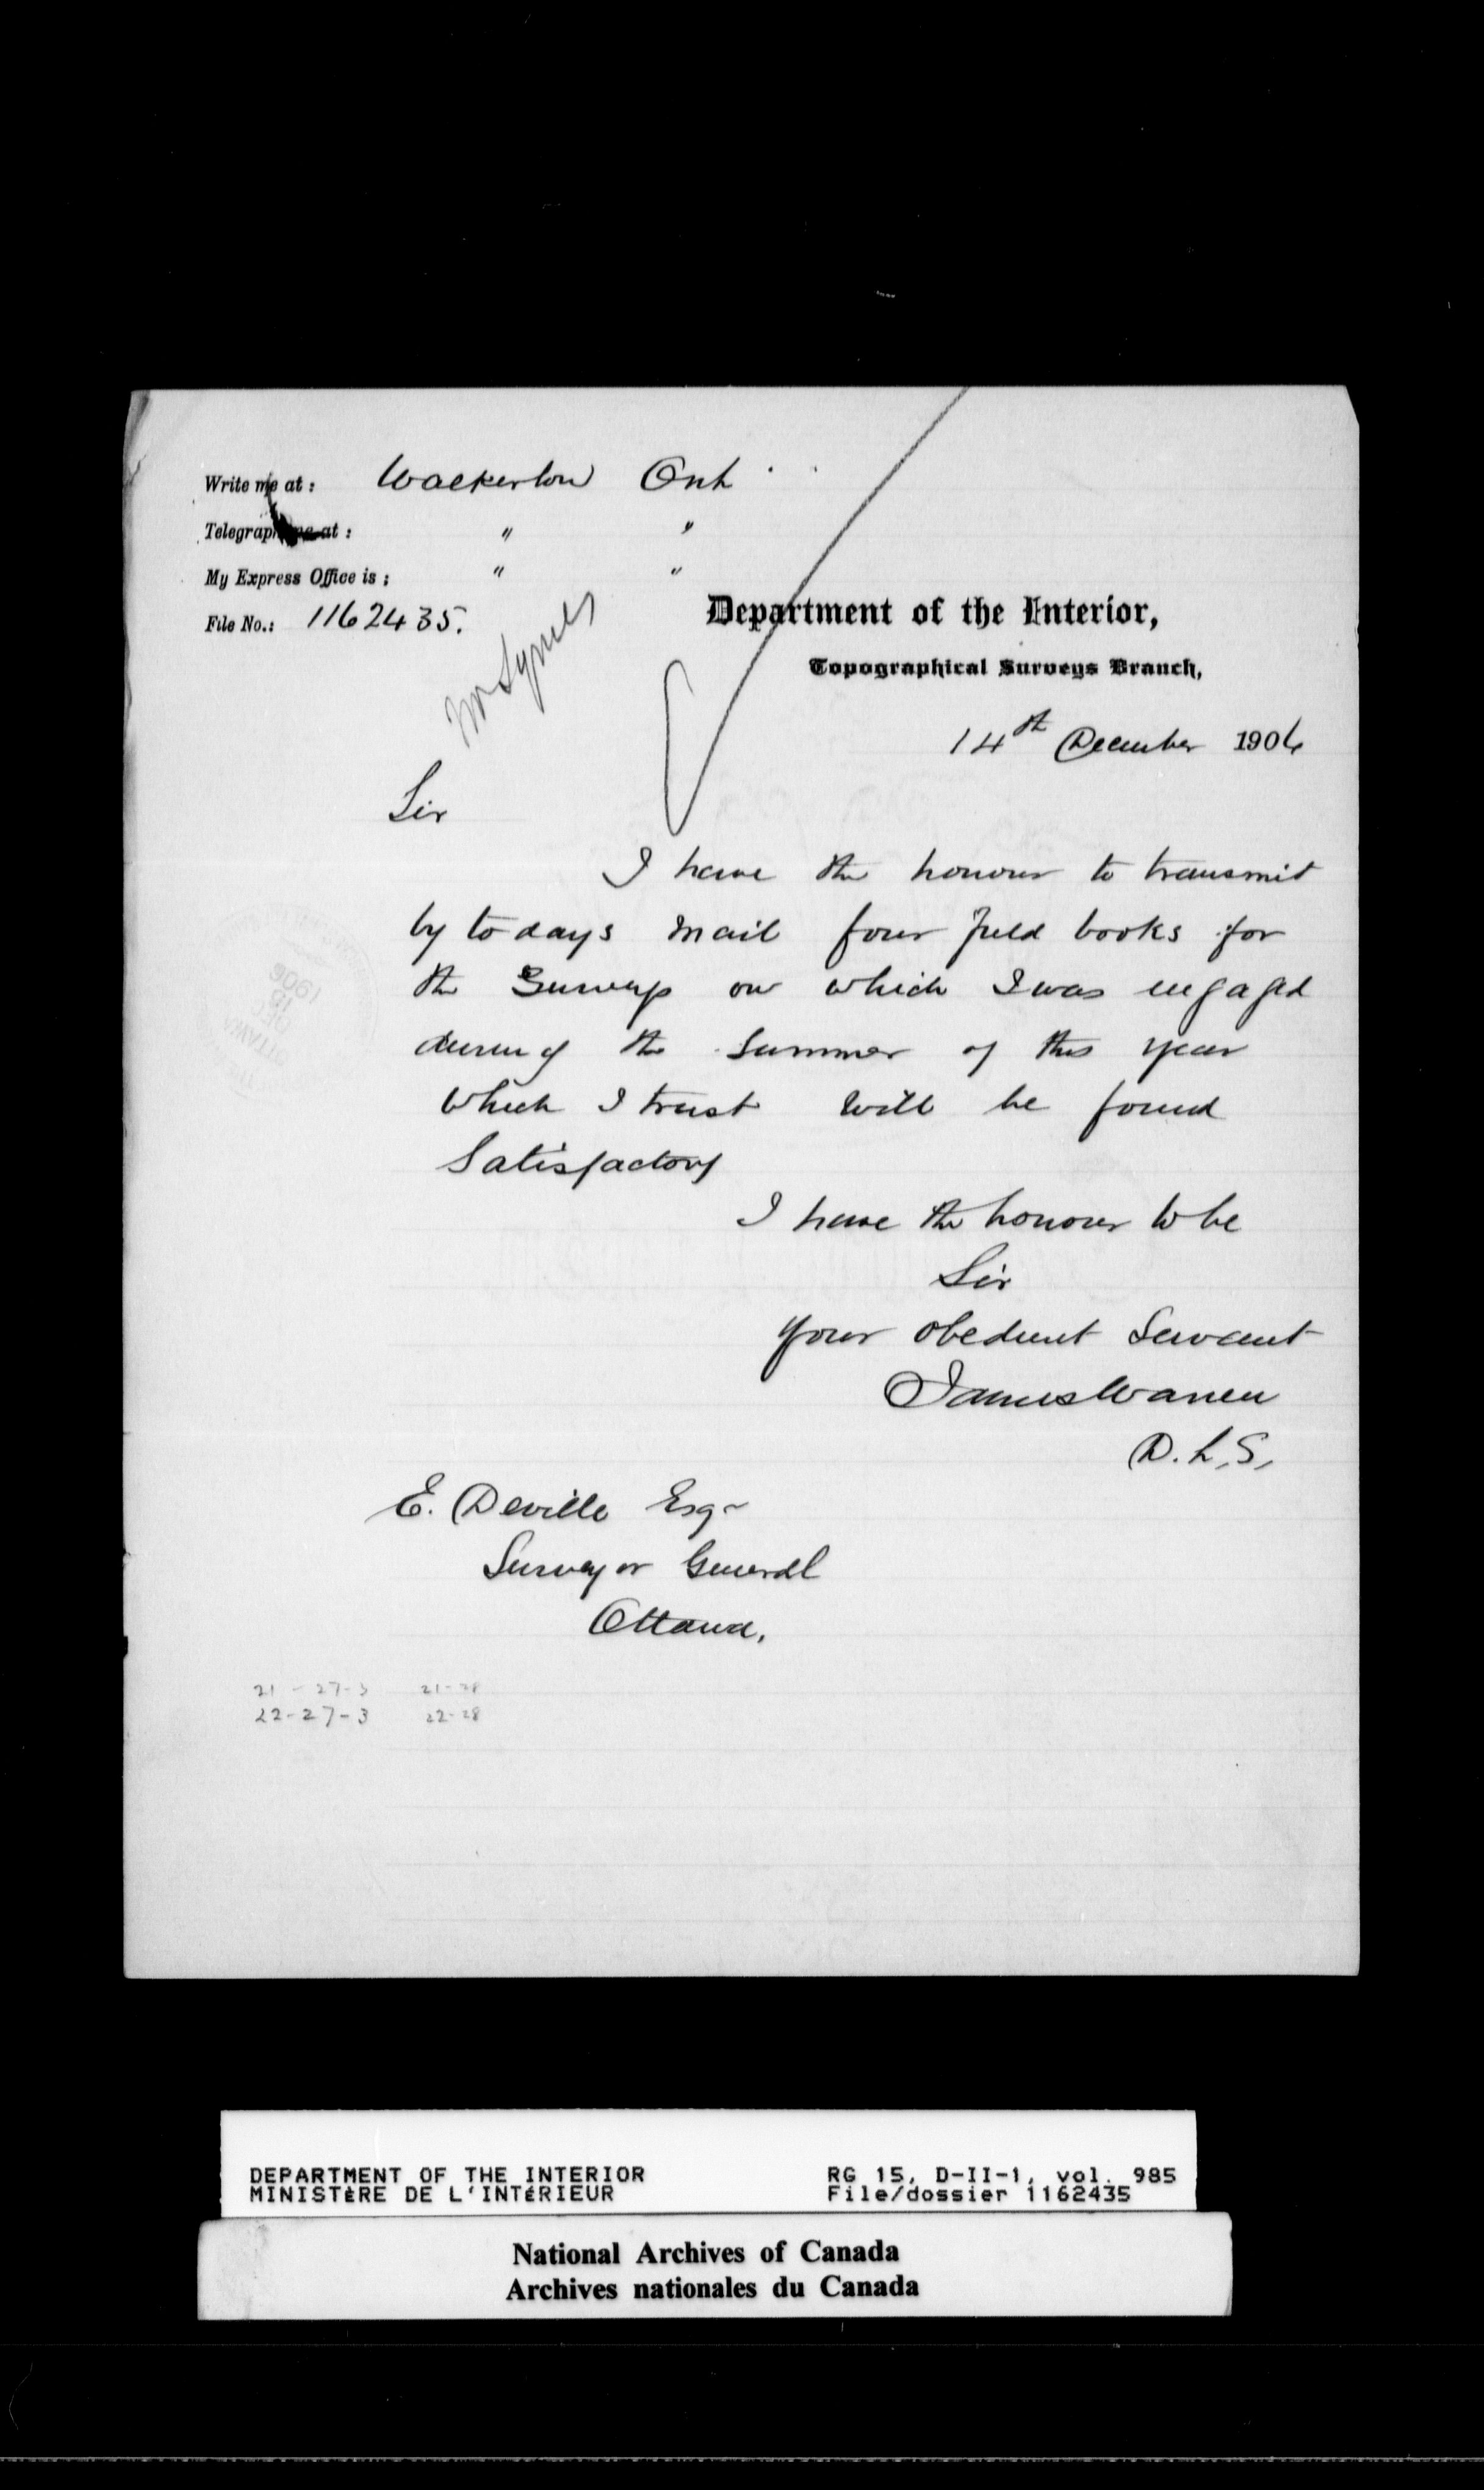 Write me at: Walkerton Ont.
Telegraph me at: " "
My Express Office is: " "
File No.: 1162435.
Department of the Interior,
Topographical Surveys Branch,
14th December 1906
Sir
I have the honour to transmit
by to days mail four field books for
the Surveys on which I was engaged
during the Summer of this year
which I trust will be found
Satisfactory
I have the honour to be
Sir
Your obedient Servant
James Warren
D.L.S.
E. Deville Esqr
Surveyor General
Ottawa.
21-27-3 21-28
22-27-3 22-28
DEPARTMENT OF THE INTERIOR RG 15, D-II-1, vol. 985
MINISTÈRE DE L'INTÉRIEUR File/dossier 1162435
National Archives of Canada
Archives nationales du Canada